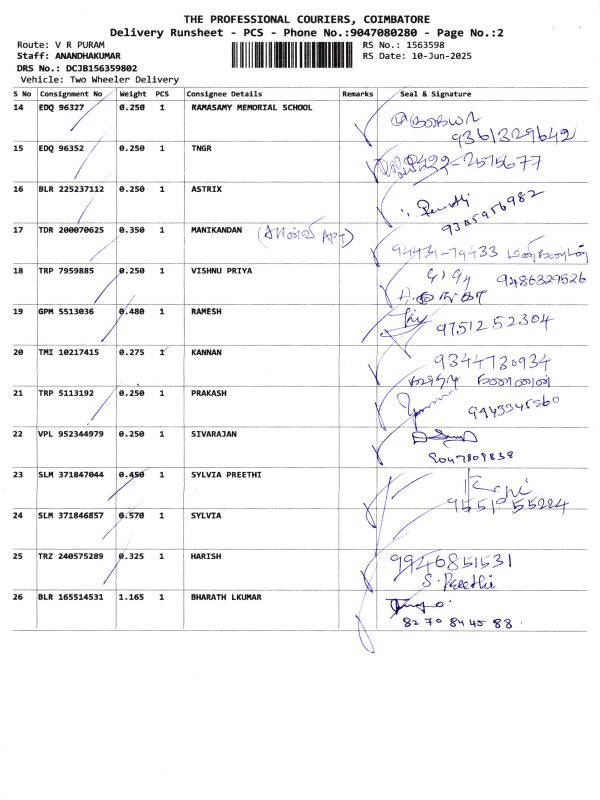 THE PROFESSIONAL COURIERS, COIMBATORE
Delivery Runsheet - PCS - Phone No.:9047080280 - Page No.:2
Route: V R PURAM RS No.: 1563598
Staff: ANANDHAKUMAR RS Date: 10-Jun-2025
DRS No.: DCJB156359802
Vehicle: Two Wheeler Delivery
S No Consignment No Weight PCS Consignee Details Remarks Seal & Signature
14 EDQ 96327 0.250 1 RAMASAMY MEMORIAL SCHOOL
9361329642
15 EDQ 96352 0.250 1 TNGR
0422-2515677
16 BLR 225237112 0.250 1 ASTRIX
9305956982
17 TDR 200070625 0.350 1 MANIKANDAN
94431-79433 மணிகண்டன்
18 TRP 7959885 0.250 1 VISHNU PRIYA
9486329526
19 GPM 5513036 0.480 1 RAMESH
9751252304
20 TMI 10217415 0.275 1 KANNAN
9344730934
கண்ணன்
21 TRP 5113192 0.250 1 PRAKASH
9943345560
22 VPL 952344979 0.250 1 SIVARAJAN
9047809838
23 SLM 371847044 0.450 1 SYLVIA PREETHI
24 SLM 371846857 0.570 1 SYLVIA
25 TRZ 240575289 0.325 1 HARISH
9940851531
S. Preethi
26 BLR 165514531 1.165 1 BHARATH LKUMAR
8270844588.